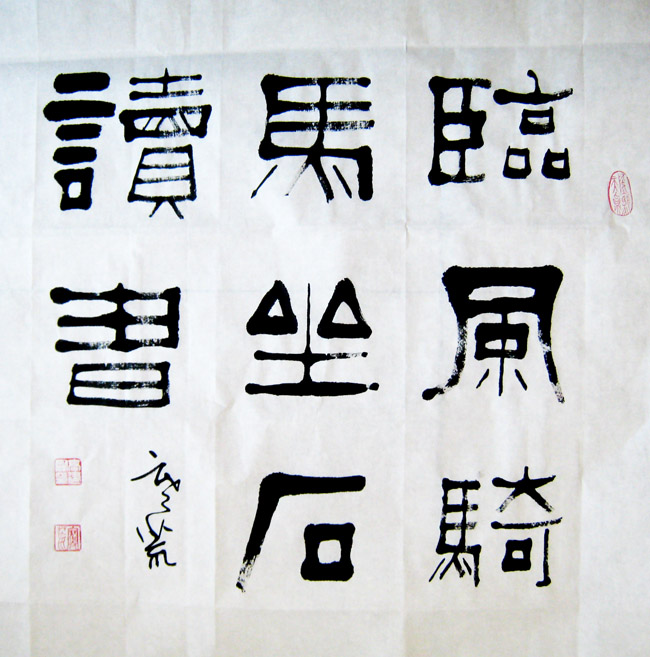 臨風騎
馬坐石
讀書